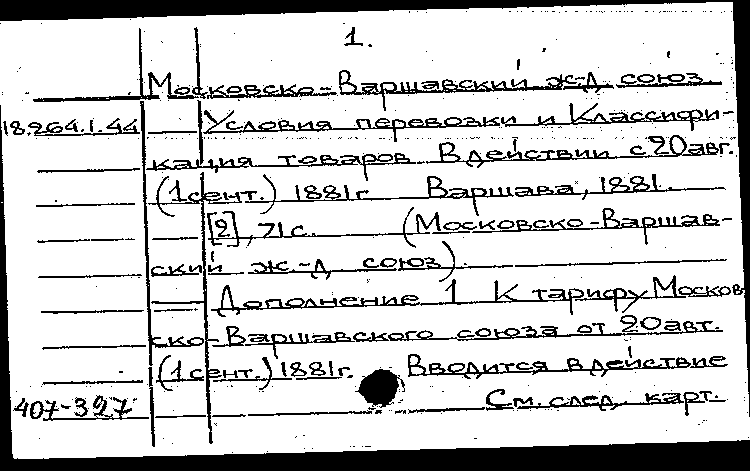 1.
Московско-Варшавский ж-д союз.
18.264.1.44 Условия перевозки и Классифи-
кация товаров В действии с 20 авг.
(1 сент.) 1881 г Варшава, 1881.
[2], 71 с. (Московско-Варшав-
ский ж.-д союз).
Дополнение 1 К тарифу Москов
ско-Варшавского союза от 20 авг.
(1 сент.) 1881 г. Вводится в действие
407-327 См. след. карт.